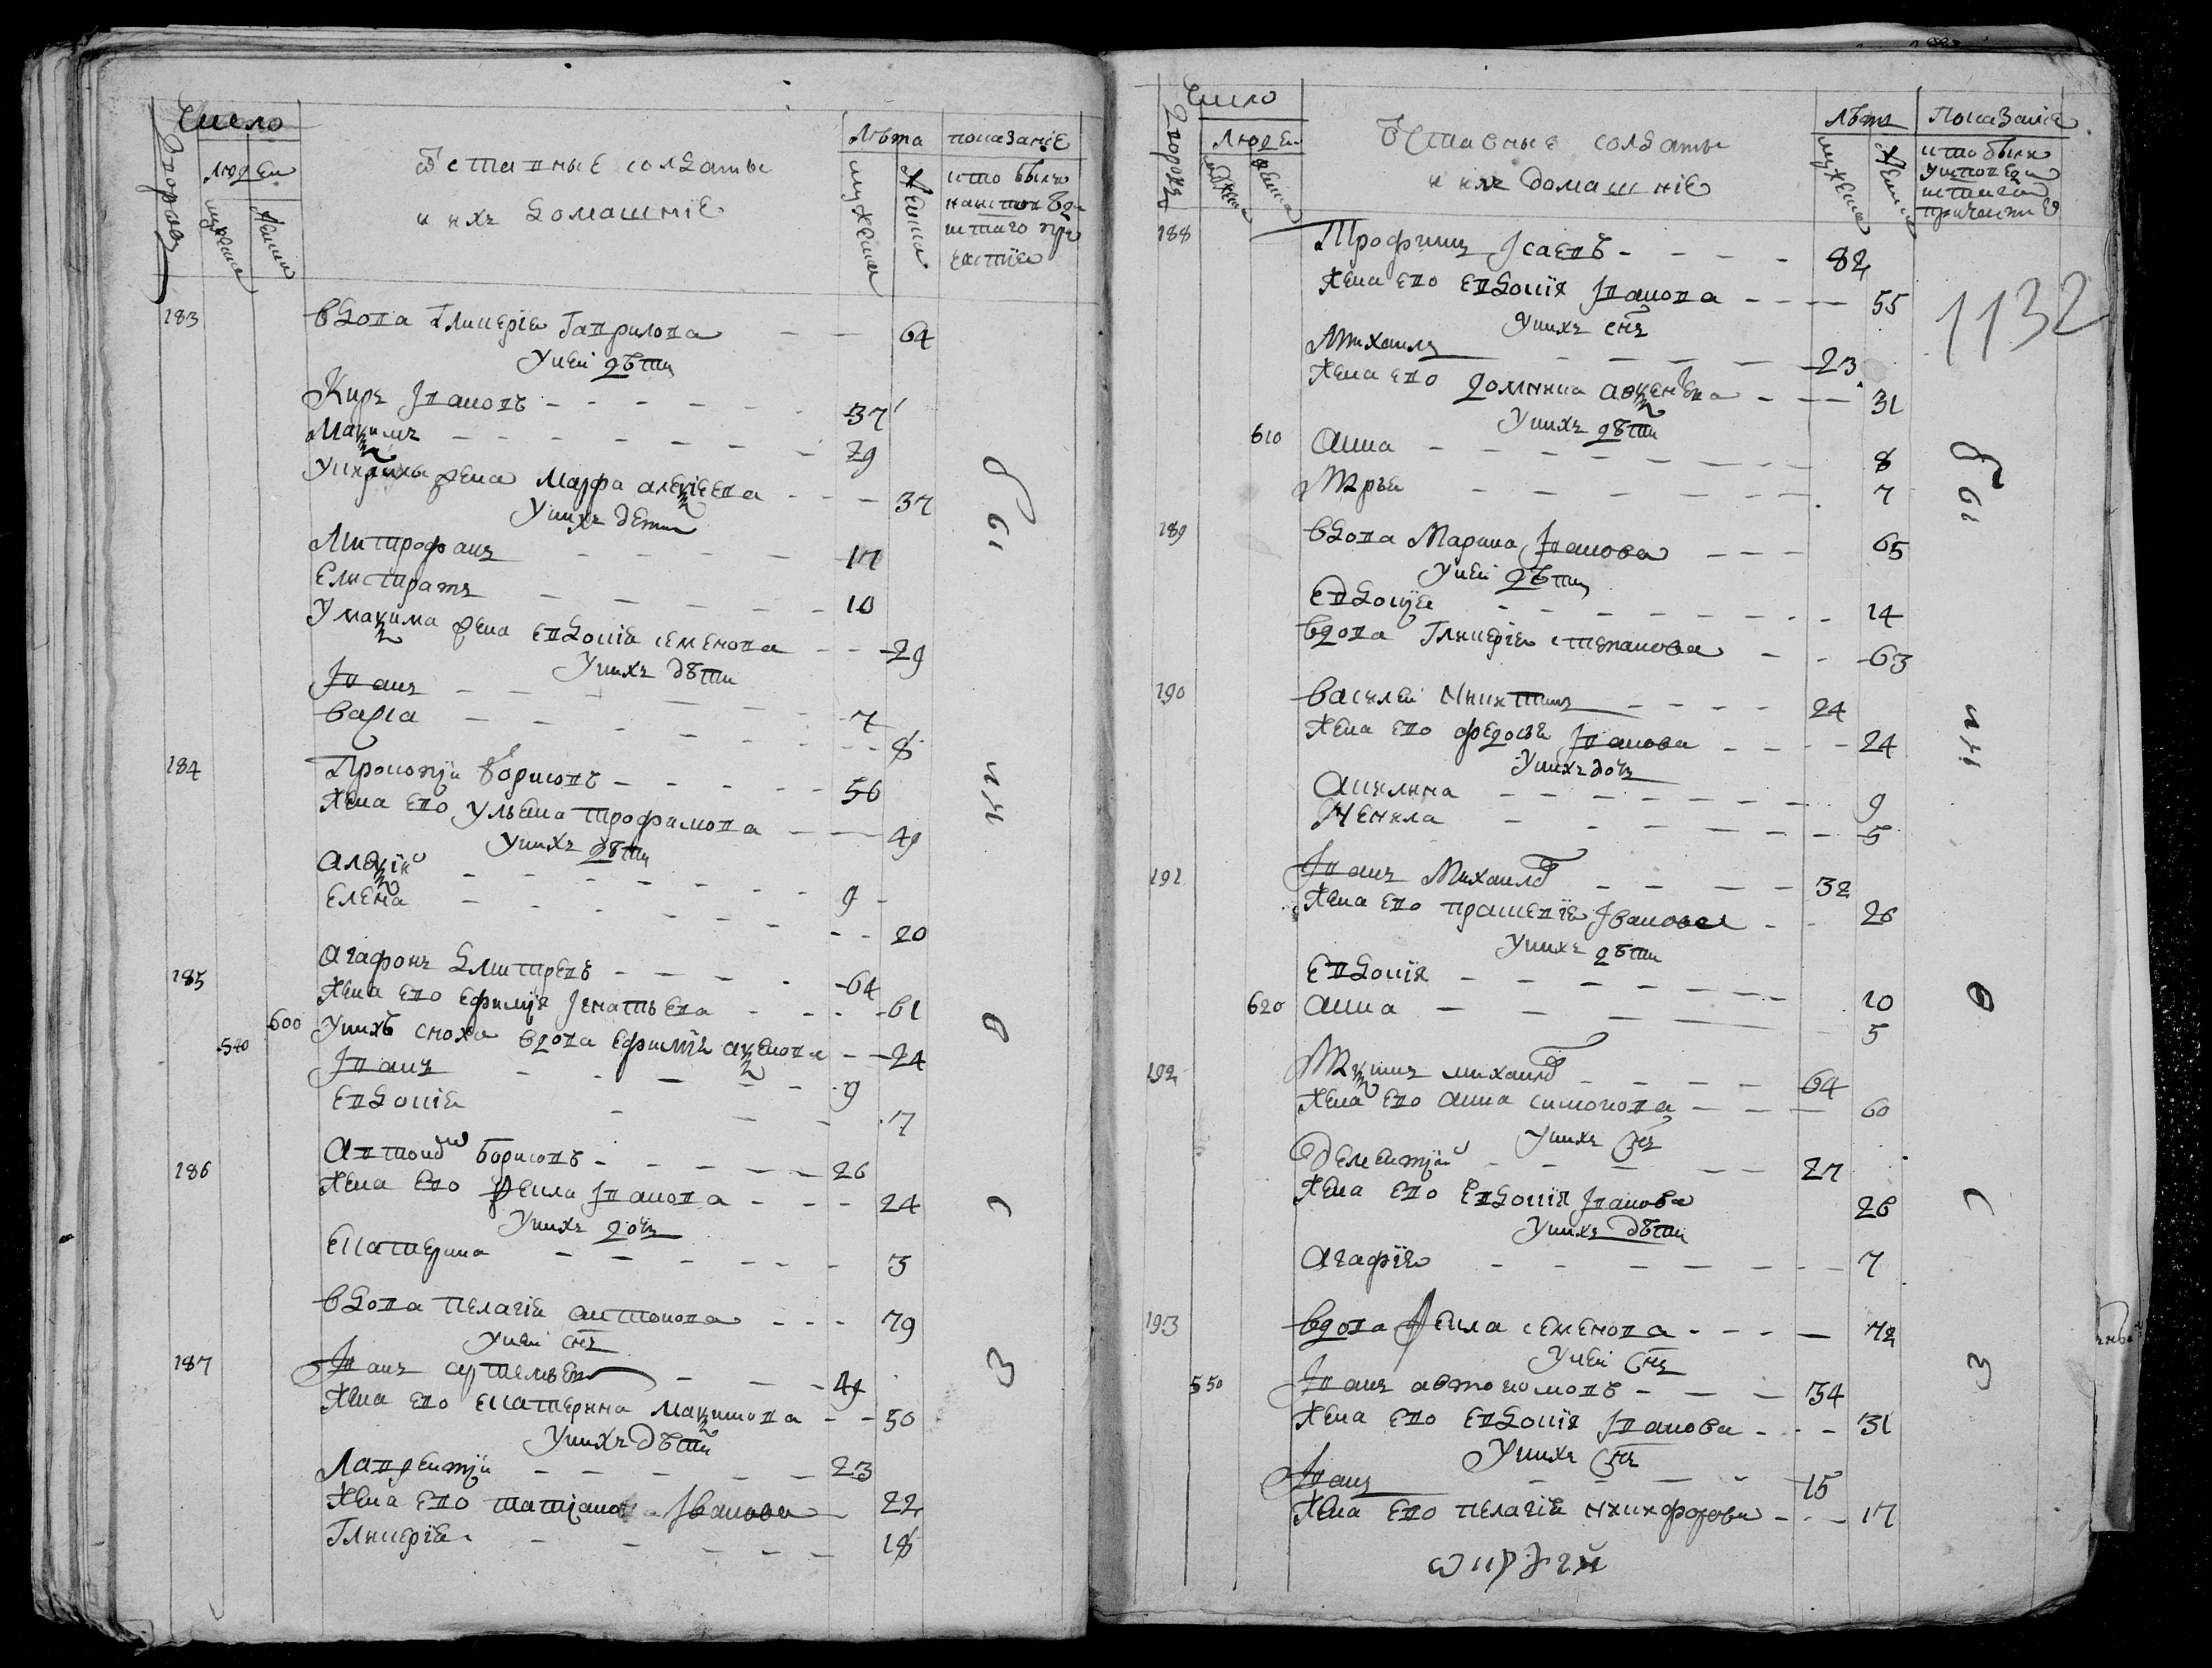 Число
Дворовъ
людей
мужеска
женска
Отставные солдаты
и ихъ домашніе
Лѣта
мужеска
женска
показаніе
кто былъ
на исповѣди
и стаго при
частія
183
вдова Гликерія Гаврилова 64
У ней дѣти
Киръ Івановъ 37
Максимъ 29
У Кира жена Марфа алексіева 37
У нихъ дети
Митрофанъ 17
Елистратъ 10
У максима жена Евдокія семенова 29
У нихъ дѣти
Іванъ 7
варва 8
184
Прокопій борисовъ 56
жена его Ульяна трофимова 49
У нихъ дѣти
Алексій 9
Елена 20
185
Агафонъ Дмитревъ 64
жена его Ефимія Ігнатьева 61
540 600
У нихъ сноха вдова Ефимія аксенова 24
Іванъ 9
Евдокія 7
186
Антоній борисовъ 26
жена его Фекла Іванова 24
У нихъ дочь
Екатерина 3
вдова пелагія антонова 79
У ней снъ
187
Іванъ артемьевъ 49
жена его екатерина максимова 50
У нихъ дѣти
Лаврентій 23
жена его татіана Іванова 22
Гликерія 18
бы
ли
о
с
з
Число
Дворовъ
людей
мужеска
женска
Отставные солдаты
и ихъ домашніе
лѣта
мужеска
женска
Показаніе
кто былъ
у исповеди
и стаго
причастія
1132
188
Трофимъ Ісаевъ 82
жена его Евдокія Іванова 55
У нихъ снъ
Михаилъ 23
жена его домника авксентева 31
У нихъ дѣти
610 Анна 8
Марья 7
189
вдова Марина Іванова 65
У ней дѣти
Евдокія 14
вдова Гликерія степанова 63
190
василей Никитинъ 24
жена его федосья Іванова 24
У нихъ дочь
Акилина 9
Неонила 5
191
Іванъ Михаилов 32
жена его парасгевія Іванова 26
У нихъ дѣти
Евдокія 10
620 анна 5
192
Максимъ михаилов 64
жена его анна симонова 60
У нихъ снъ
Дементій 27
жена его Евдокія Іванова 26
У нихъ дѣти
Агафія 7
193
вдова Фекла семенова 72
У ней снъ
550 Іванъ автономовъ 34
жена его Евдокія Іванова 31
У нихъ снъ
Іванъ 15
жена его пелагія никифорова 17
бы
ли
о
с
з